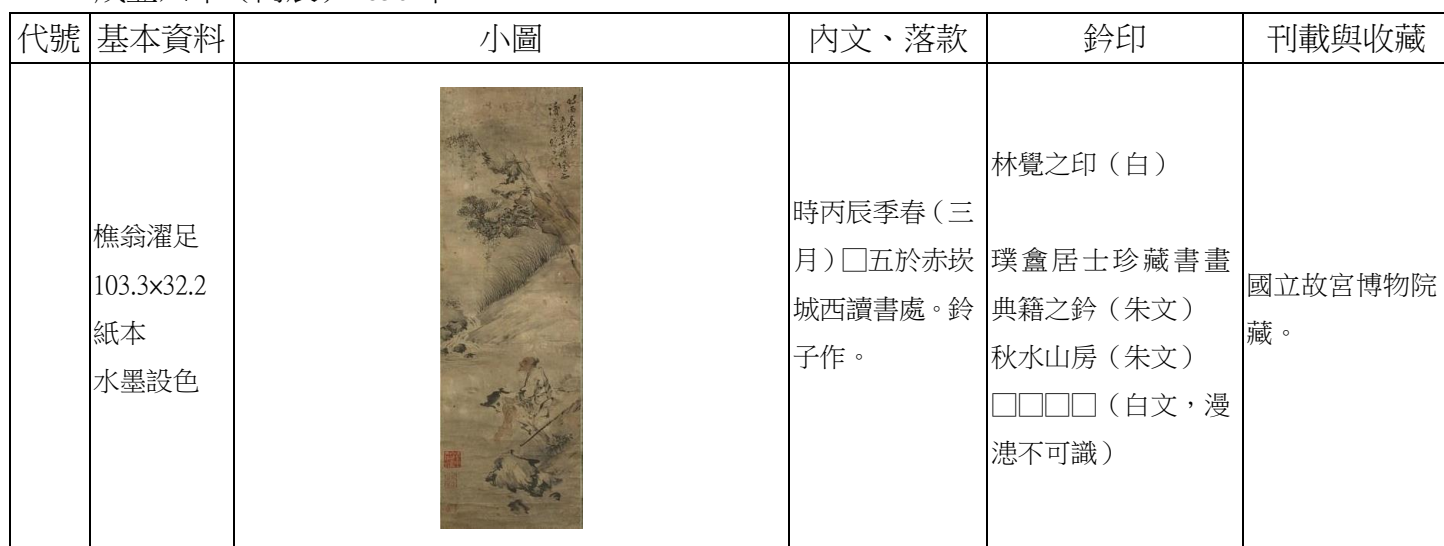 代號 基本資料 小圖 內文、落款 鈐印 刊載與收藏
樵翁濯足
103.3×32.2
紙本
水墨設色
時丙辰季春（三
月）□五於赤崁
城西讀書處。鈴
子作。
林覺之印（白）
璞盦居士珍藏書畫
典籍之鈐（朱文）
秋水山房（朱文）
□□□□（白文，漫
漶不可識）
國立故宮博物院
藏。